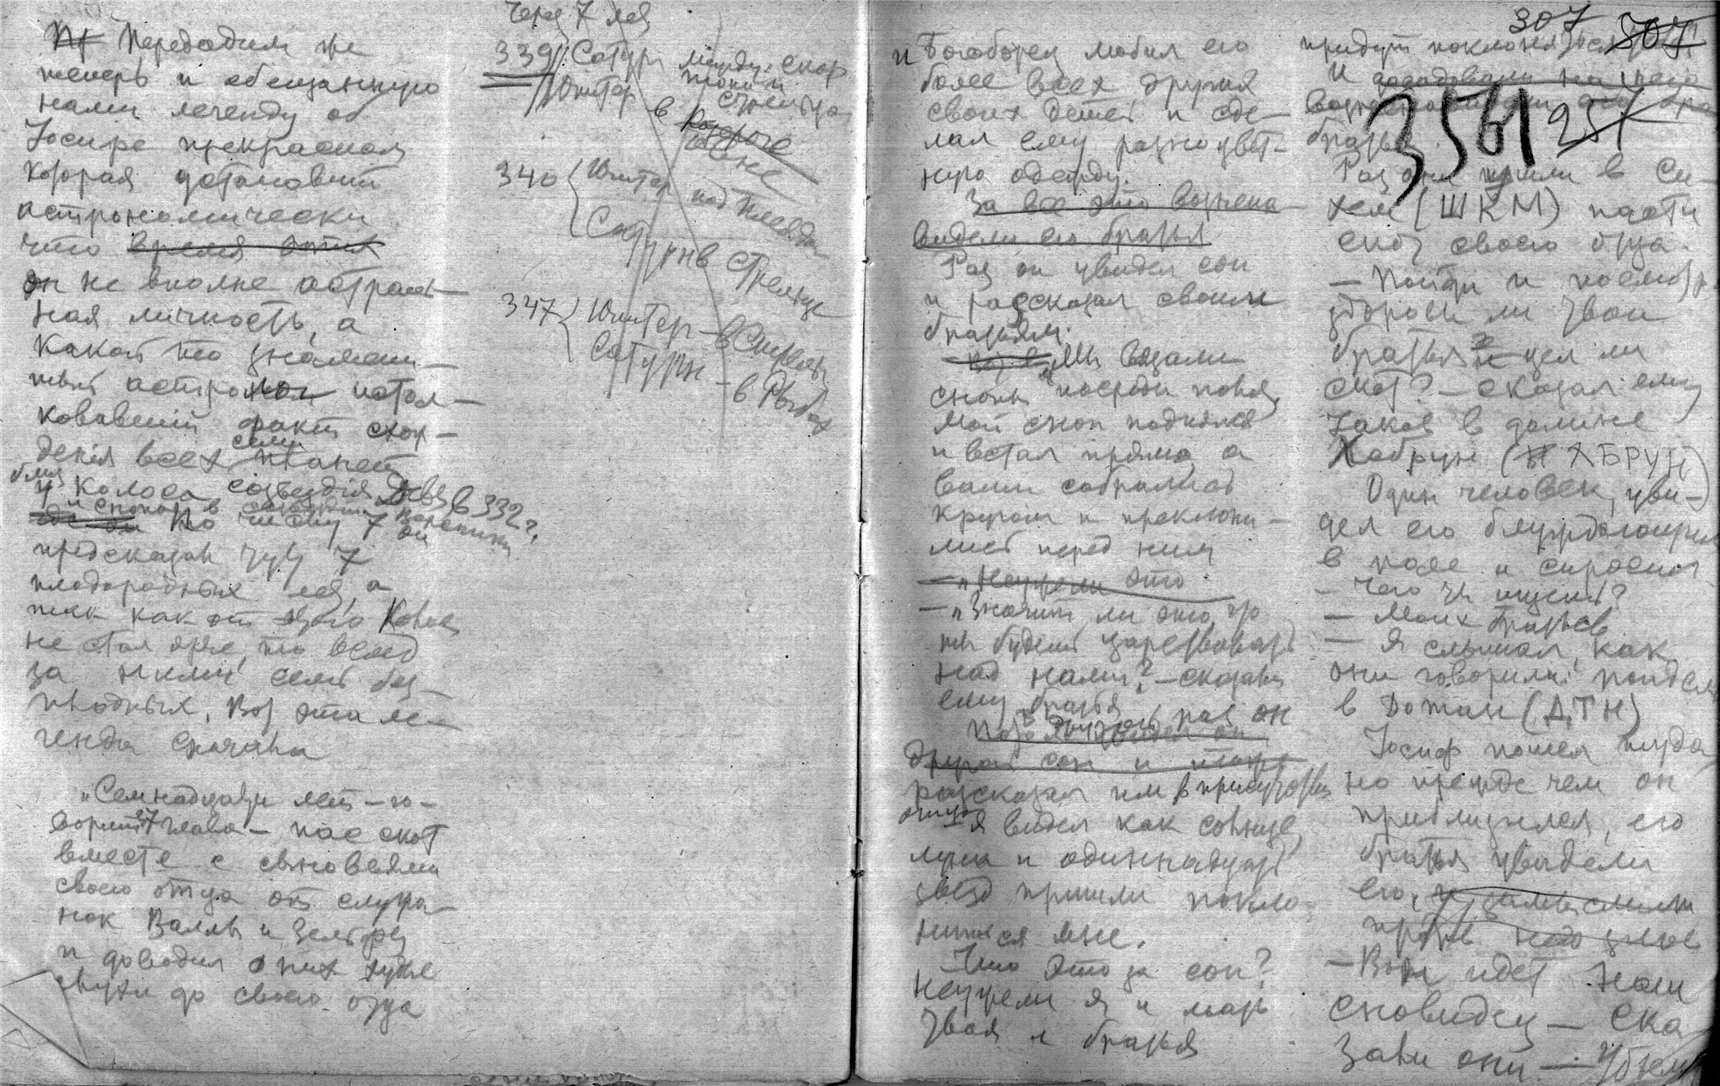 Переходим же
теперь и обещанную
нами легенду об
Іосифе прекрасном
которая установит
астрономически
что время этих
он не вполне абстракт-
ная личность, а
какой то знамени-
тый астроном истол-
ковавший факт схож-
денія всех семи планет
у Колоса созвездія Девы в 332 г.
по числу 7
предсказан 7
плодородных лет, а
так как от этого Колос
не стал ярче, то вслед
за ними семь без-
плодных. Вот эта ле-
генда сначала
„Семнадцати лет – го-
ворит 37 глава – пас скот
вместе с сыновьями
своего отца от служа-
нок Валлы и Зелфы
и доводил о них худые
слухи до своего отца
Через 7 лет
339 Сатурн между скор
пионом и стрельцом
Юпитер в
340 Юпитер над Плеядами
Сатурн в Стрельце
347 Юпитер – в
Сатурн – в Рыбах
307 307
3561 257
и Богоборец любил его
более всех других
своих детей и сде-
лал ему разноцвет-
ную одежду.
За все это вознена-
видели его братья
Раз он увидел сон
и рассказал своим
братьям.
Мы вязали
снопы посреди поля,
мой сноп поднялся
и встал прямо, а
ваши собрались
кругом и преклони-
лись перед ним
– „Неужели это
– „Значит ли это, что
ты будешь царствовать
над нами? – сказали
ему братья
раз он
другой сон и
рассказал им в присутствии
отца
– я видел как солнце,
луна и одиннадцать
звезд пришли покло-
ниться мне.
– Что это за сон?
Неужели я и мать
твоя и братья
придут поклониться
И
братья
Раз они пошли в Си-
хем (ШКМ) пасти
скот своего отца.
– Пойди и посмотри
здоровы ли твои
братья и цел ли
скот? – сказал ему
Іаков в долине
Хабрун (ХБРУН)
Один человек, уви-
дел его блуждающим
в поле и спросил
– Чего ты ищешь?
– Моих братьев
– Я слышал, как
они говорили: пойдем
в Дотан (ДТН)
Іосиф пошел туда,
но прежде чем он
приблизился, его
братья увидели
его, и замыслили
против него злое
– Вон идет наш
сновидец – ска-
зали они – Убьем